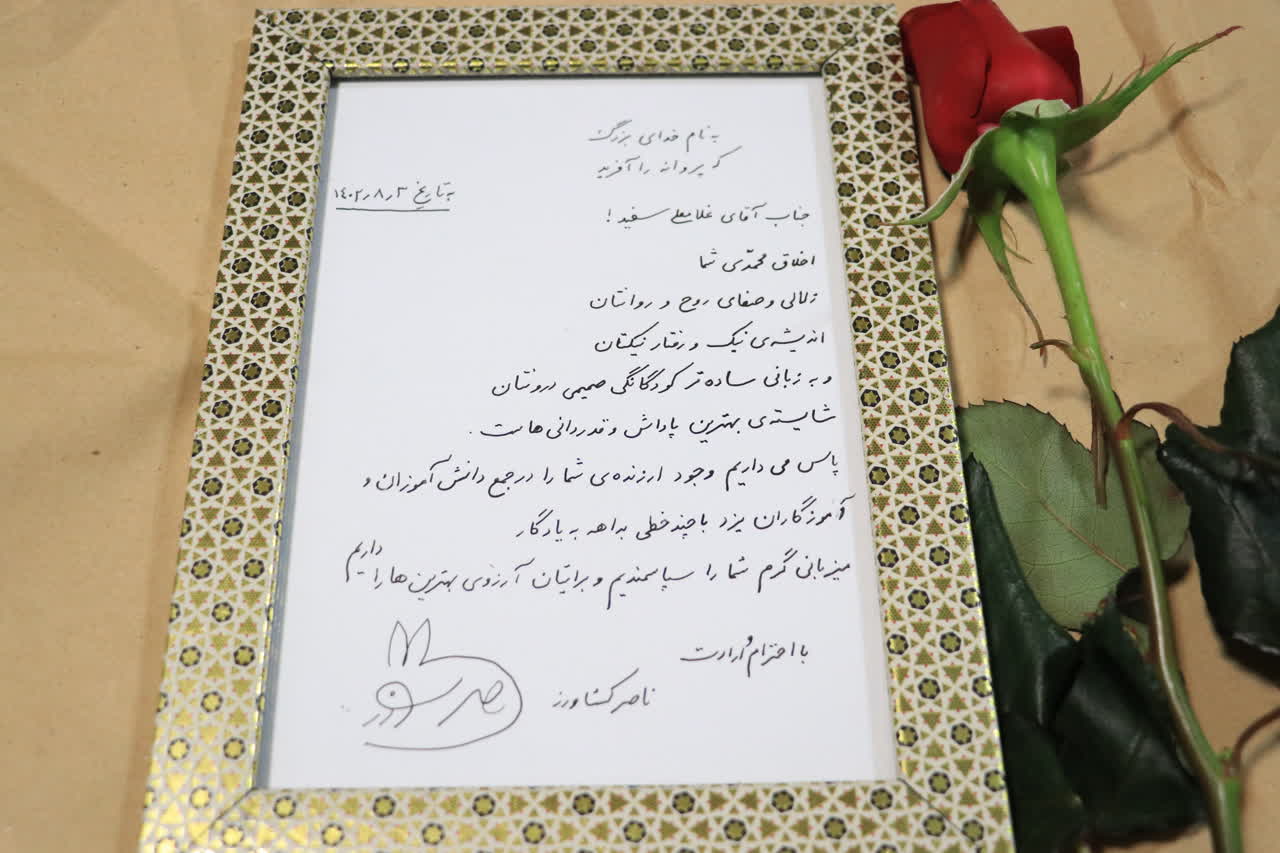 به نام خدای بزرگ
که پروانه را آفرید
به تاریخ ۱۴۰۲٫۸٫۳
جناب آقای غلامعلی سفید!
اخلاق محمّدی شما
زلالی و صفای روح و روانتان
اندیشه‌ی نیک و رفتار نیکتان
و به زبانی ساده‌تر کودکانگی صمیمی درونتان
شایسته‌ی بهترین پاداش و قدردانی‌هاست.
پاس می داریم وجود ارزنده‌ی شما را در جمع دانش‌آموزان و
آموزگاران یزد با چند خطی بداهه به یادگار
میزبانی گرم شما را سپاسمندیم و برایتان آرزوی بهترین ها را داریم
با احترام و ارادت
ناصر کشاورز